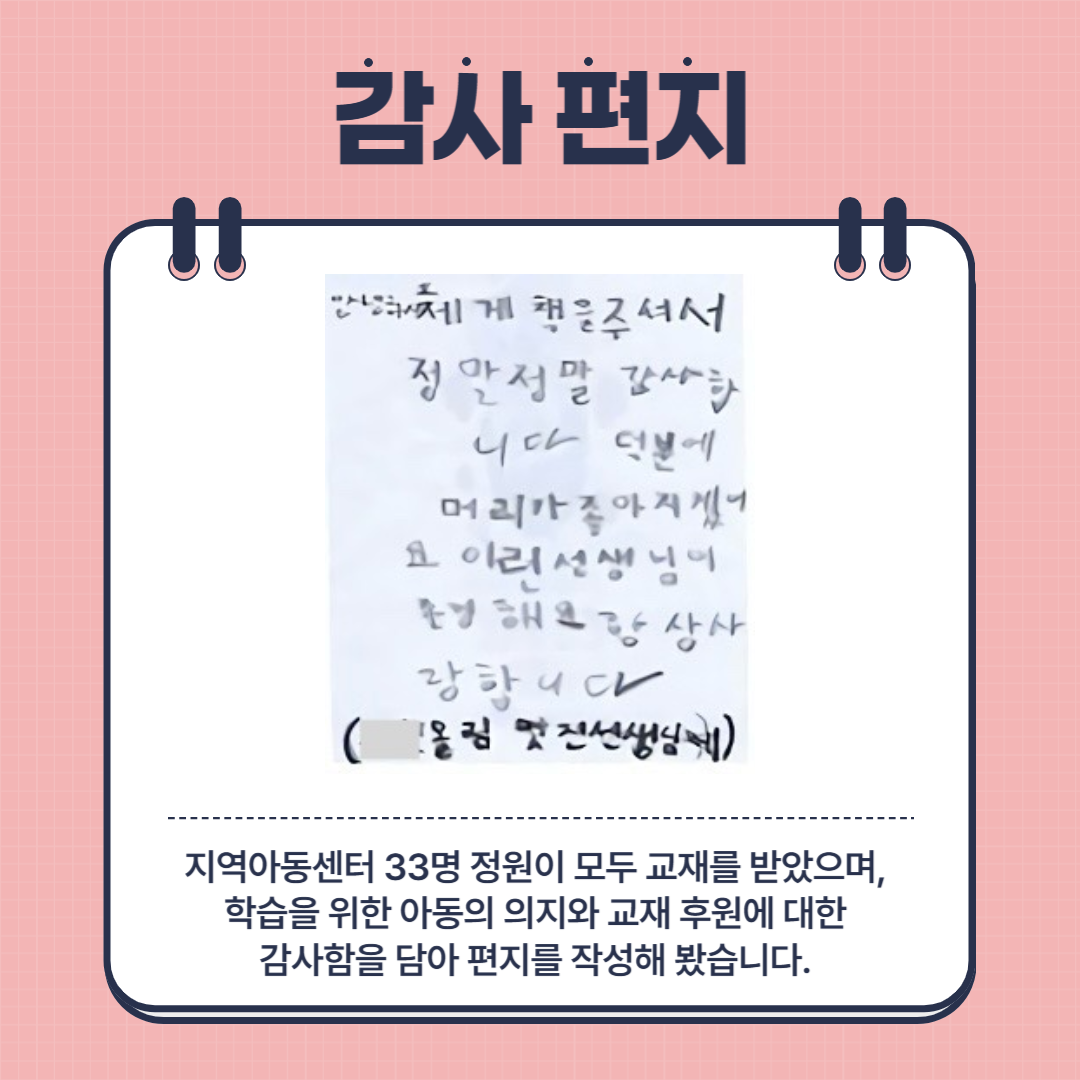 감사 편지
안녕하세요 제게 책을 주셔서
정말정말 감사합
니다 덕분에
머리가 좋아지겠어
요 이런선생님이
존경해요 항상사
랑합니다
(올림 멋진선생님께)
지역아동센터 33명 정원이 모두 교재를 받았으며,
학습을 위한 아동의 의지와 교재 후원에 대한
감사함을 담아 편지를 작성해 봤습니다.